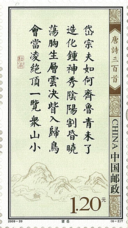 唐詩三百首
岱宗夫如何齊魯青未了
造化鍾神秀陰陽割昏曉
蕩胸生層雲決眥入歸鳥
會當凌絕頂一覽衆山小
CHINA 中国邮政
1.20元